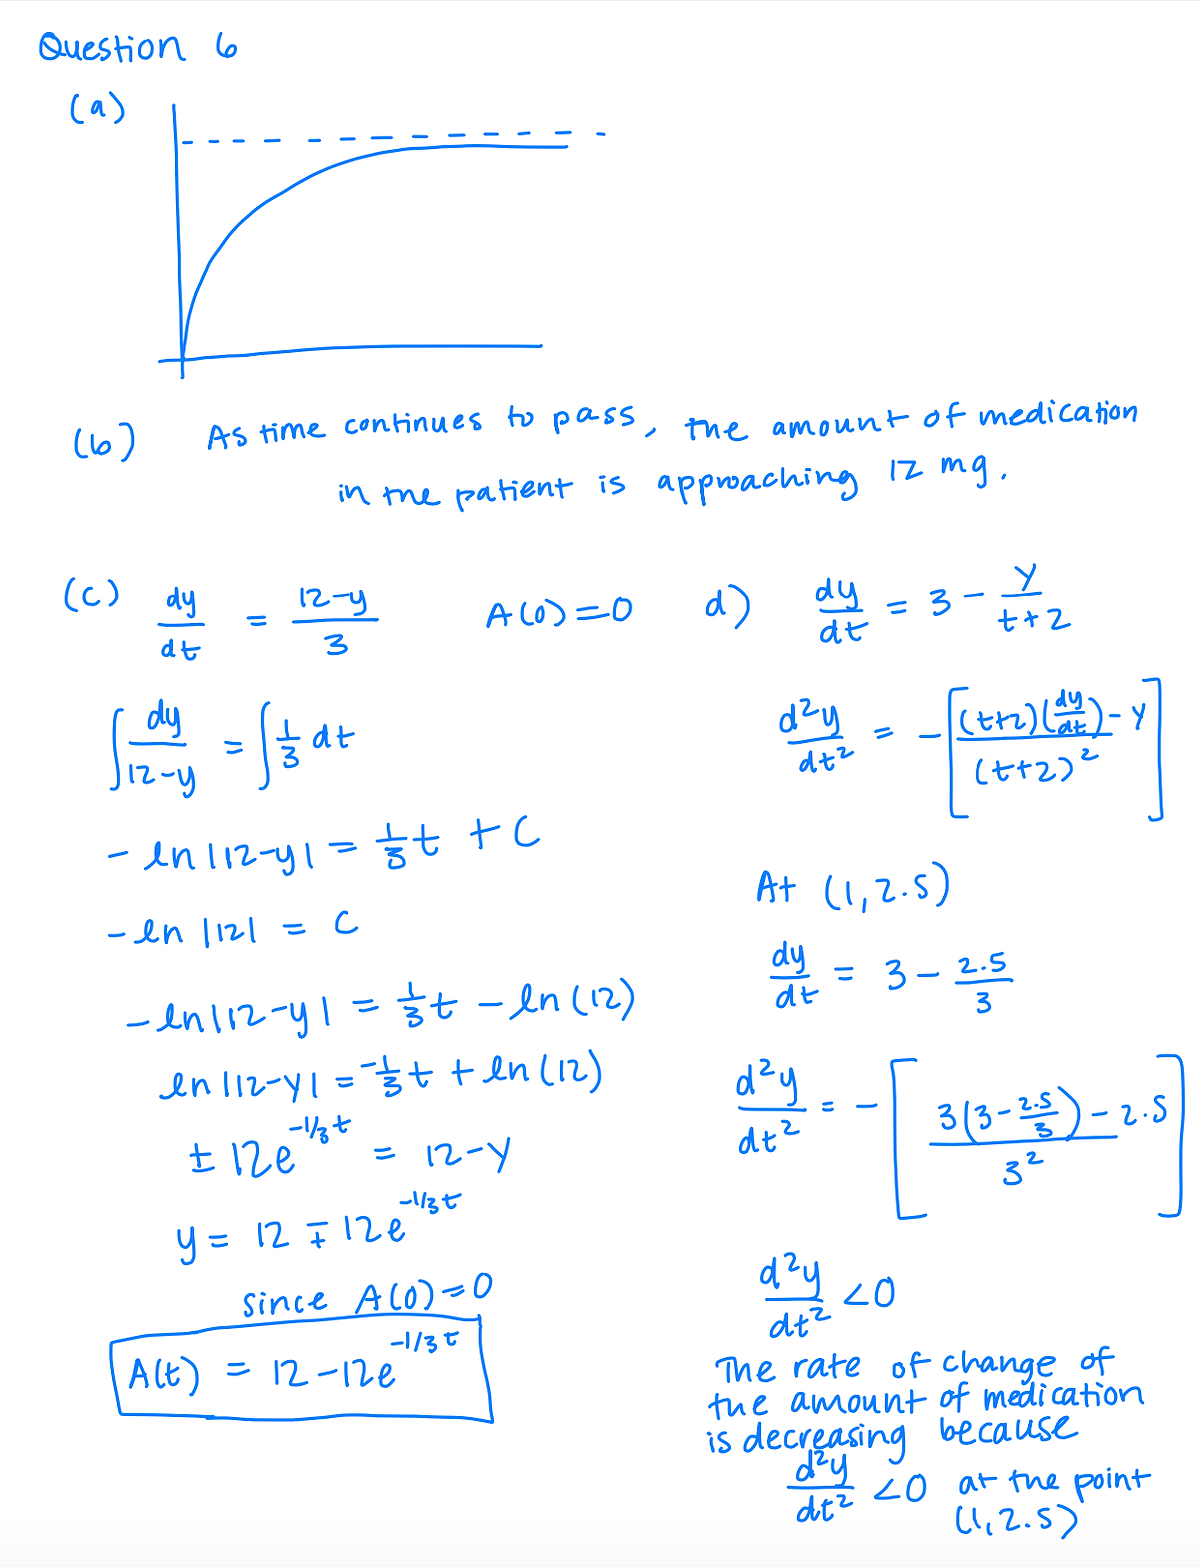 Question 6
(a)
(b) As time continues to pass, the amount of medication
in the patient is approaching 12 mg.
(c) dy/dt = (12-y)/3 A(0)=0
∫ dy/(12-y) = ∫ 1/3 dt
- ln|12-y| = 1/3 t + C
- ln|12| = C
- ln|12-y| = 1/3 t - ln(12)
ln|12-y| = -1/3 t + ln(12)
± 12e^(-1/3 t) = 12-y
y = 12 ∓ 12e^(-1/3 t)
since A(0)=0
A(t) = 12-12e^(-1/3 t)
d) dy/dt = 3 - y/(t+2)
d²y/dt² = -[((t+2)(dy/dt)-y)/(t+2)²]
At (1,2.5)
dy/dt = 3 - 2.5/3
d²y/dt² = -[(3(3-2.5/3)-2.5)/3²]
d²y/dt² <0
The rate of change of
the amount of medication
is decreasing because
d²y/dt² <0 at the point
(1,2.5)